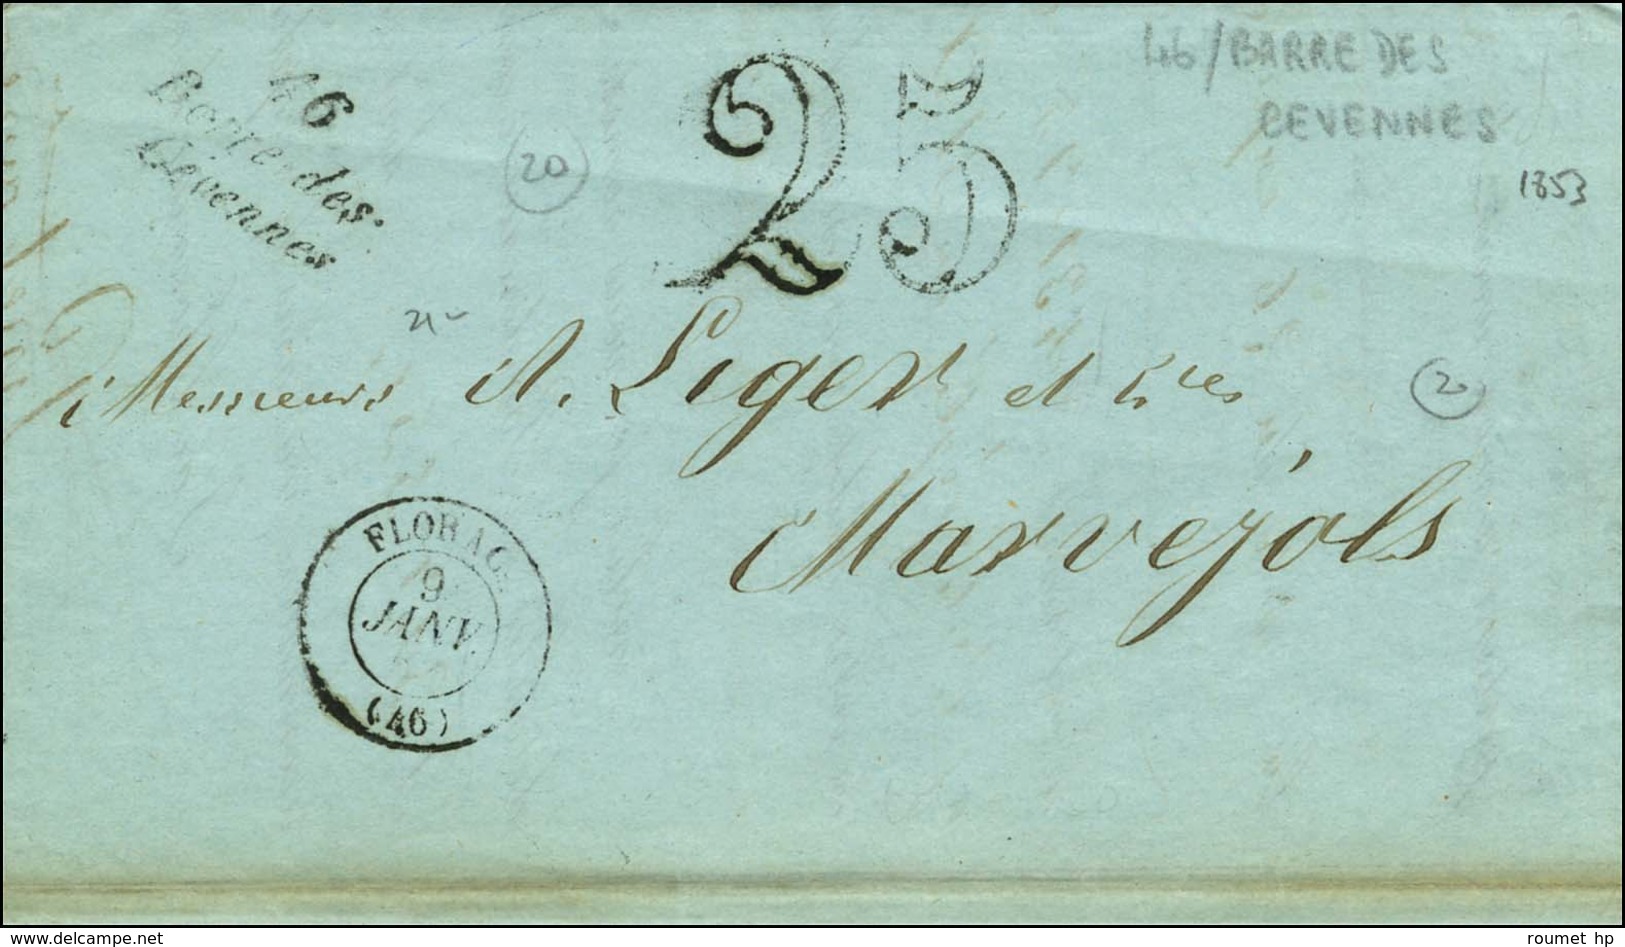 46
Barre-des-
Cévennes
25
46/BARRE DES
CEVENNES
1853
20
21-
Messieurs A. Liger et
Marvejols
20
FLORAC
9
JANV.
(46)
delcampe.net
roumet hp